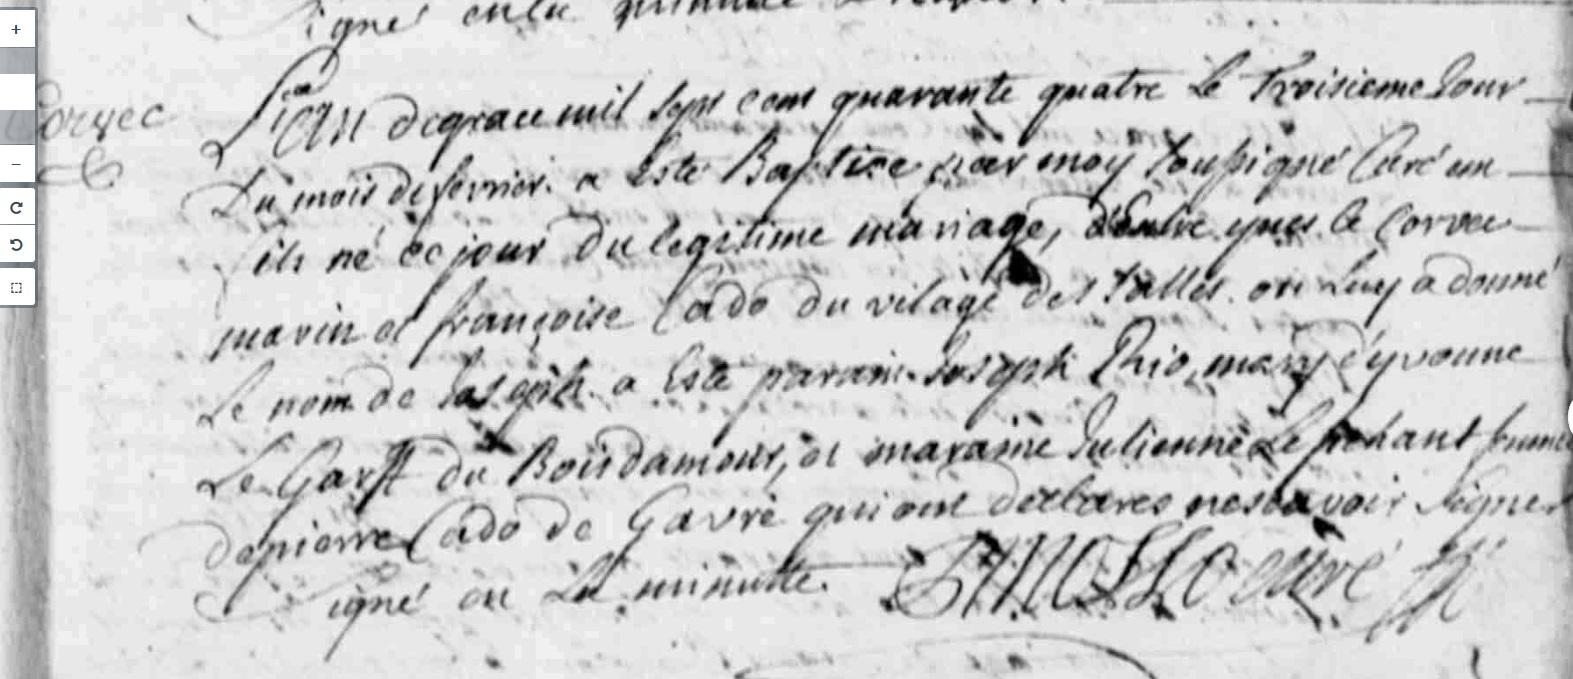 Signé en la minutte
Corvec
L'an de grace mil sept cent quarante quatre le troisieme Jour
Du mois de fevrier. a Esté Baptise par moy soussigné Curé un
fils né ce jour du legitime mariage, d'Entre yves le Corvec
marin et françoise Cado du vilage des salles. on Luy a donné
Le nom de Joseph. a Esté parain Joseph Rio, mary d'yvonne
Le Garff du Boisdamour, et maraine Julienne Le femme
de pierre Cado de Gavre qui ont declares ne scavoir signer
signé en La minutte. curé